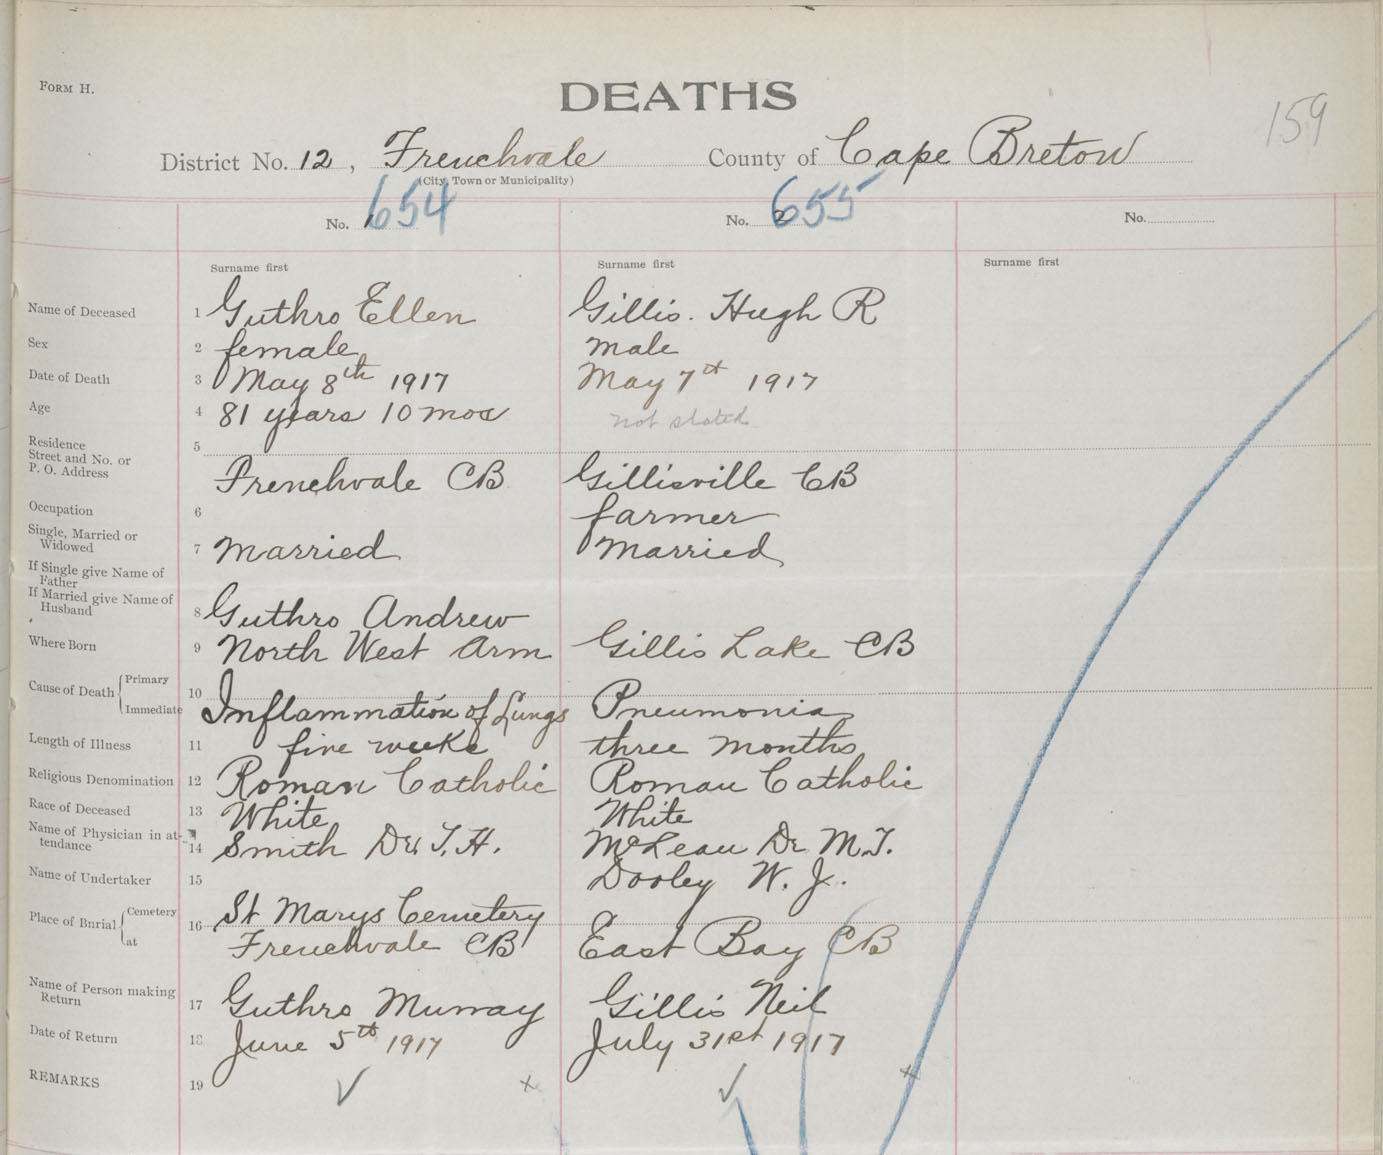 FORM H.
DEATHS
159
District No. 12, Frenchvale County of Cape Breton
(City, Town or Municipality)
No. 1 654 No. 2 655 No.
Surname first Surname first Surname first
Name of Deceased 1 Guthro Ellen Gillis. Hugh R
Sex 2 female male
Date of Death 3 May 8th 1917 May 7th 1917
Age 4 81 years 10 mos not stated
Residence
Street and No. or
P. O. Address 5 Frenchvale CB Gillisville CB
Occupation 6 farmer
Single, Married or
Widowed 7 married married
If Single give Name of
Father
If Married give Name of
Husband 8 Guthro Andrew
Where Born 9 North West Arm Gillis Lake CB
Cause of Death Primary
Immediate 10 Inflammation of Lungs Pneumonia
Length of Illness 11 five weeks three months
Religious Denomination 12 Roman Catholic Roman Catholic
Race of Deceased 13 White White
Name of Physician in at-
tendance 14 Smith Dr. T. H. McLean Dr M.T.
Name of Undertaker 15 Dooley W. J.
Place of Burial Cemetery 16 St Marys Cemetery
at Frenchvale CB East Bay CB
Name of Person making
Return 17 Guthro Murray Gillis Neil
Date of Return 18 June 5th 1917 July 31st 1917
REMARKS 19